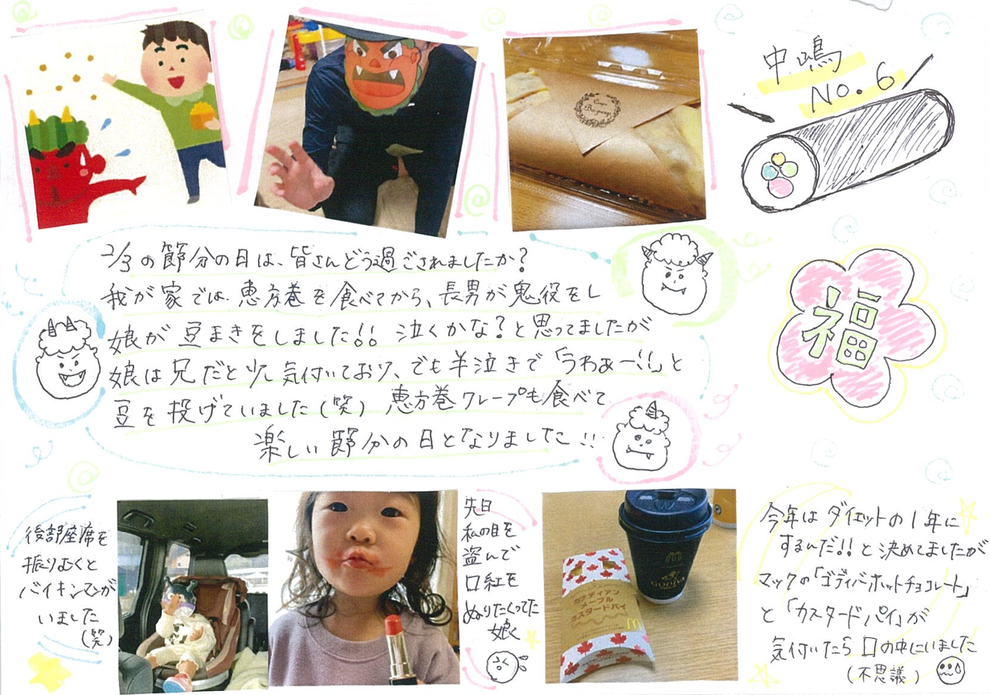 中嶋
No. 6
2/3の節分の日は、皆さんどう過ごされましたか?
我が家では、恵方巻を食べてから、長男が鬼役をし
娘が豆まきをしました!! 泣くかな?と思ってましたが
娘は兄だと少し気付いており、でも半泣きで「うわぁー!!」と
豆を投げていました(笑) 恵方巻クレープも食べて
楽しい節分の日となりました!!
福
後部座席を
振りむくと
バイキンマンが
いました
(笑)
先日
私の目を
盗んで
口紅を
ぬりたくってた
娘
GODIVA
カナディアン
メープル
カスタードパイ
今年はダイエットの1年に
するんだ!!と決めてましたが
マックの「ゴディバホットチョコレート」
と「カスタードパイ」が
気付いたら口の中にいました
(不思議)